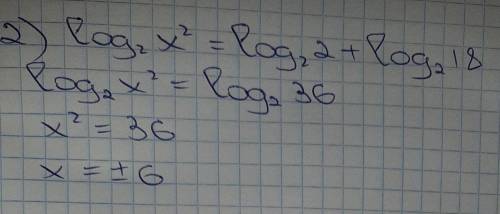 2) log₂ x² = log₂ 2 + log₂ 18
log₂ x² = log₂ 36
x² = 36
x = ±6